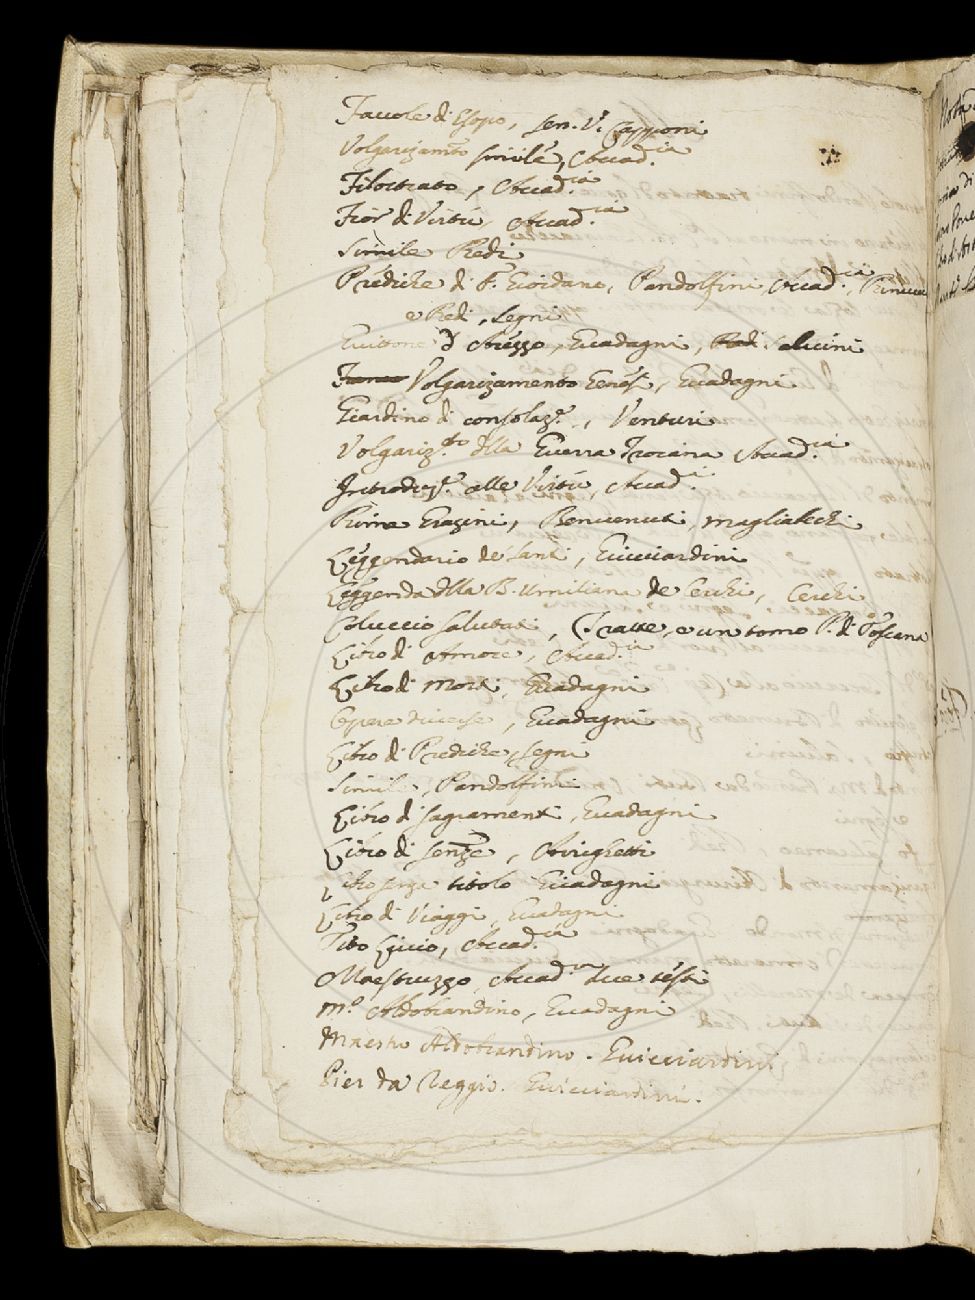 Favole di Esopo, Sen. V. Capponi
Volgarizamto simile, Accad.ia
Filostrato, Accad.ia
Fior di Virtù, Accad.ia
Simile Redi
Prediche di F. Giordano, Pandolfini, Accad.ia, Venucci
e Redi, Segni
Guittone d'Arezzo, Guadagni, Redi. Alucini
Volgarizamento Genesi, Guadagni
Giardino di consolaz.e, Venturi
Volgariz.to dlla Guerra Troiana Accad.ia
Introduz.e alle Virtù, Accad.a
Rime Grazini, Benvenuti, Magliabechi
Leggendario de Santi, Guicciardini
Leggenda dlla B. Umiliana de Cerchi, Cerchi
Coluccio Salutati, e un tomo P. di Toscana
Libro di Amore, Accad.ia
Libro di Morti, Guadagni
Opere diverse, Guadagni
Libro di Prediche, Segni
Simile, Pandolfini
Libro d sagramenti, Guadagni
Libro di senze, Arrighetti
Libro senza titolo Guadagni
Libro di Viaggi, Guadagni
Tito Livio, Accad.ia
Maestruzzo Accad.ia due testi
M.o Aldobrandino, Guadagni
Maestro Aldobrandino. Guicciardini
Pier da Reggio. Guicciardini.